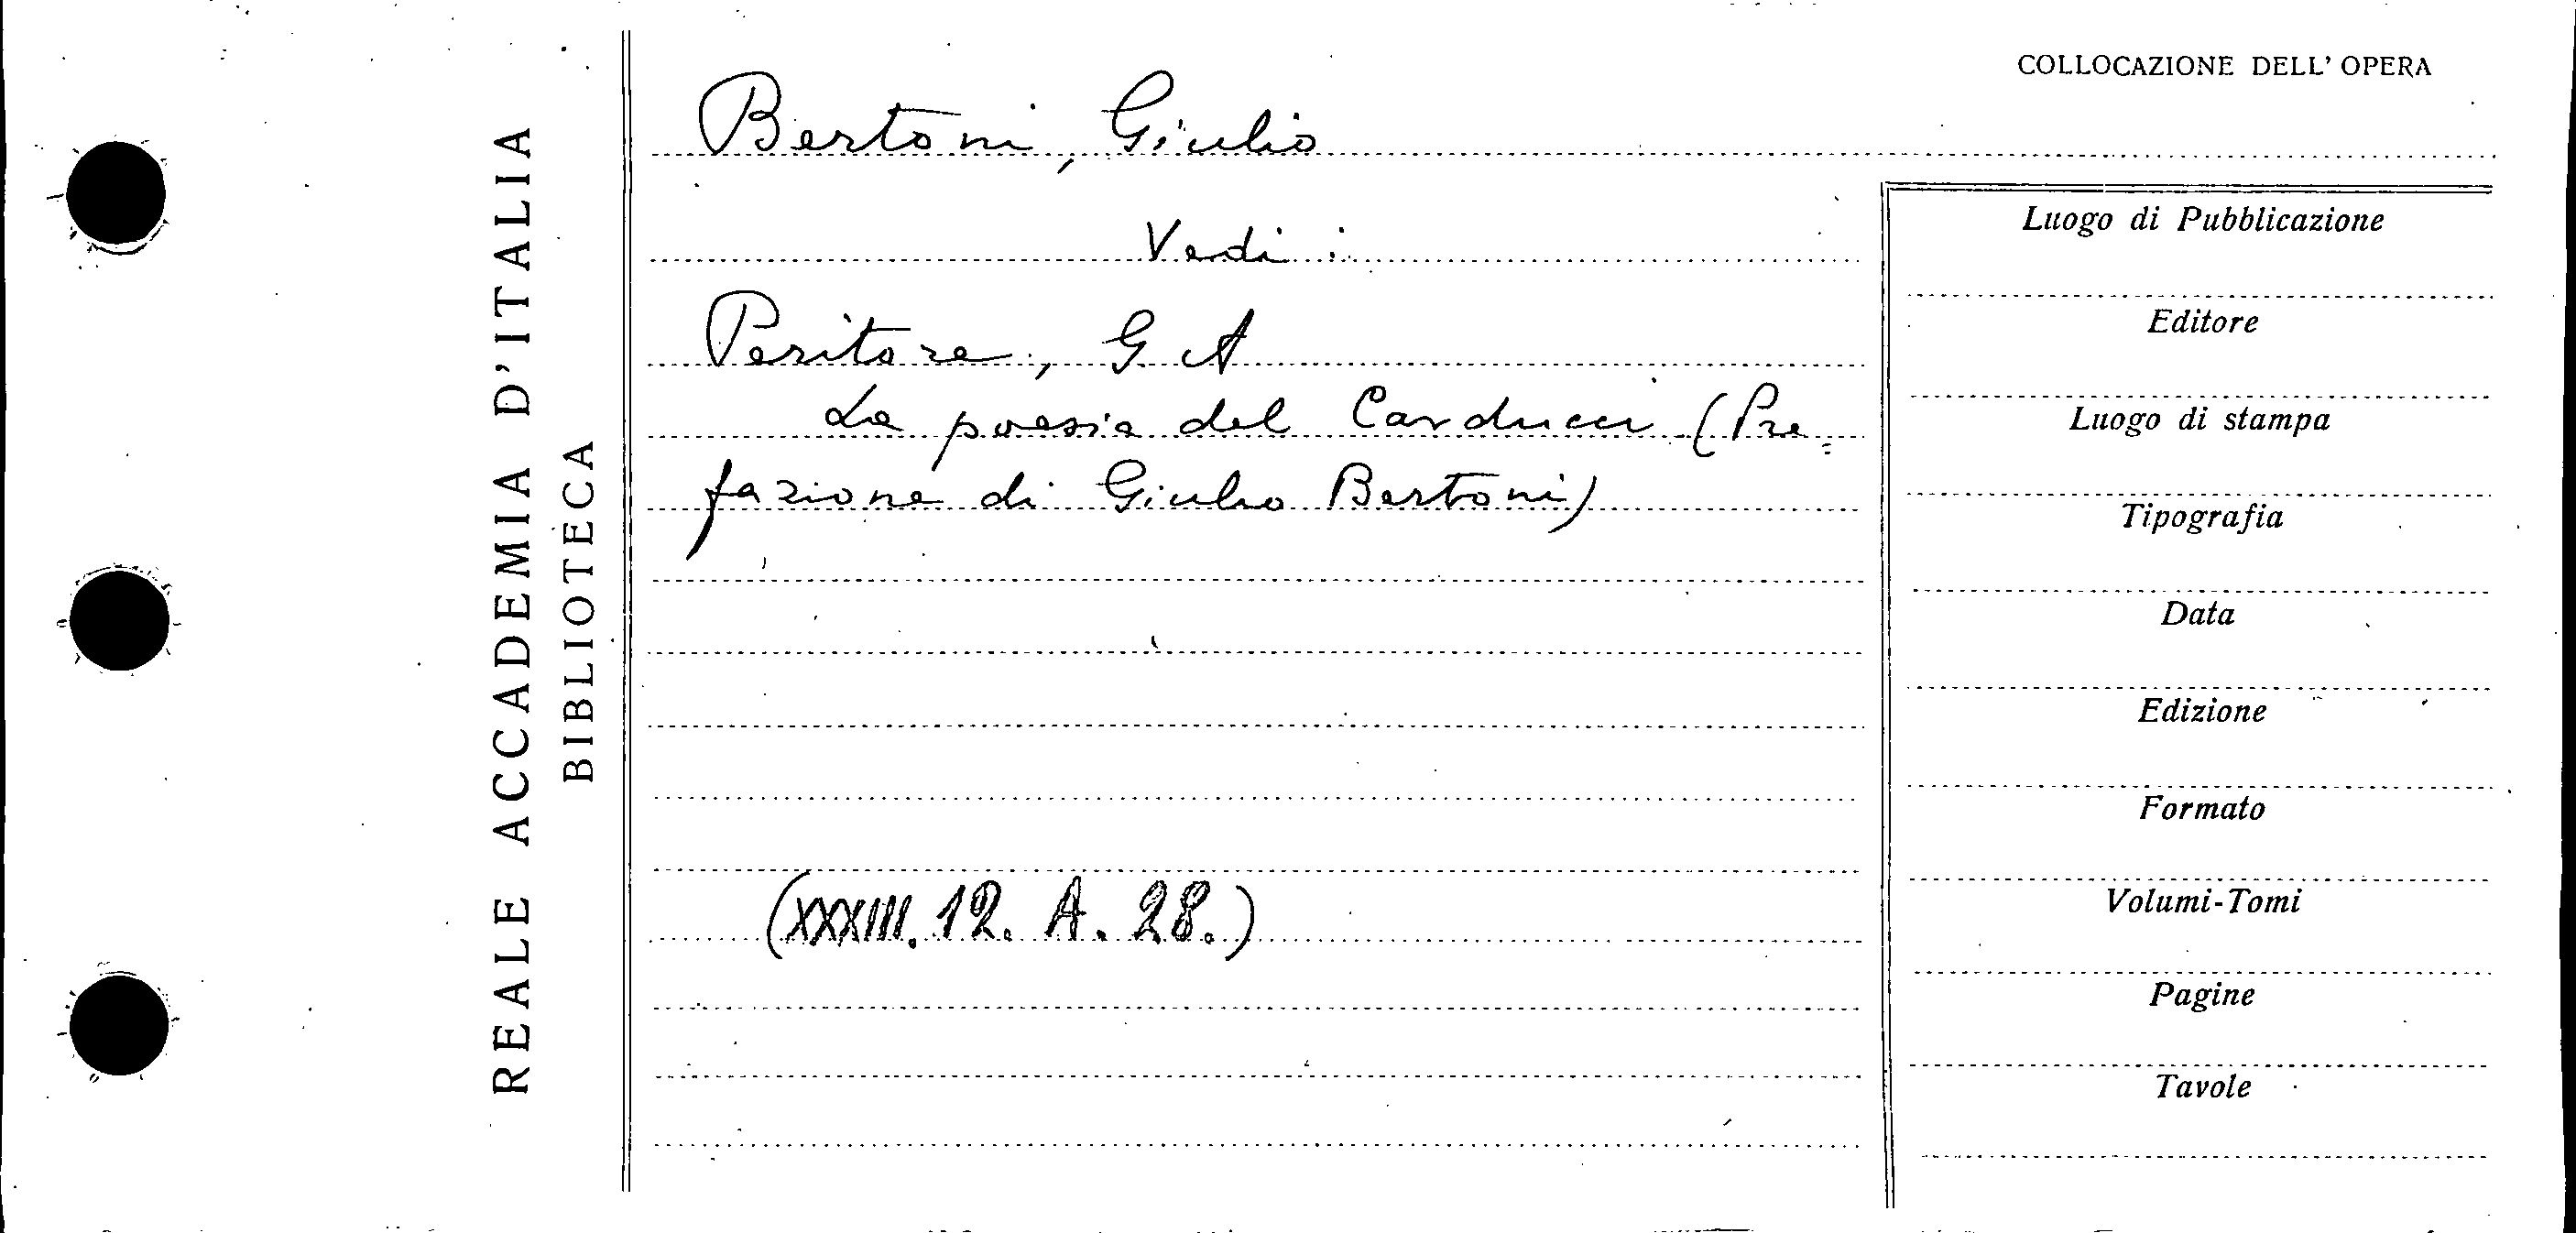 REALE ACCADEMIA D'ITALIA
BIBLIOTECA
COLLOCAZIONE DELL' OPERA
Bertoni, Giulio
Vedi:
Peritore, G A
La poesia del Carducci (Pre=
fazione di Giulio Bertoni)
(XXXIII. 12. A. 28.)
Luogo di Pubblicazione
Editore
Luogo di stampa
Tipografia
Data
Edizione
Formato
Volumi-Tomi
Pagine
Tavole